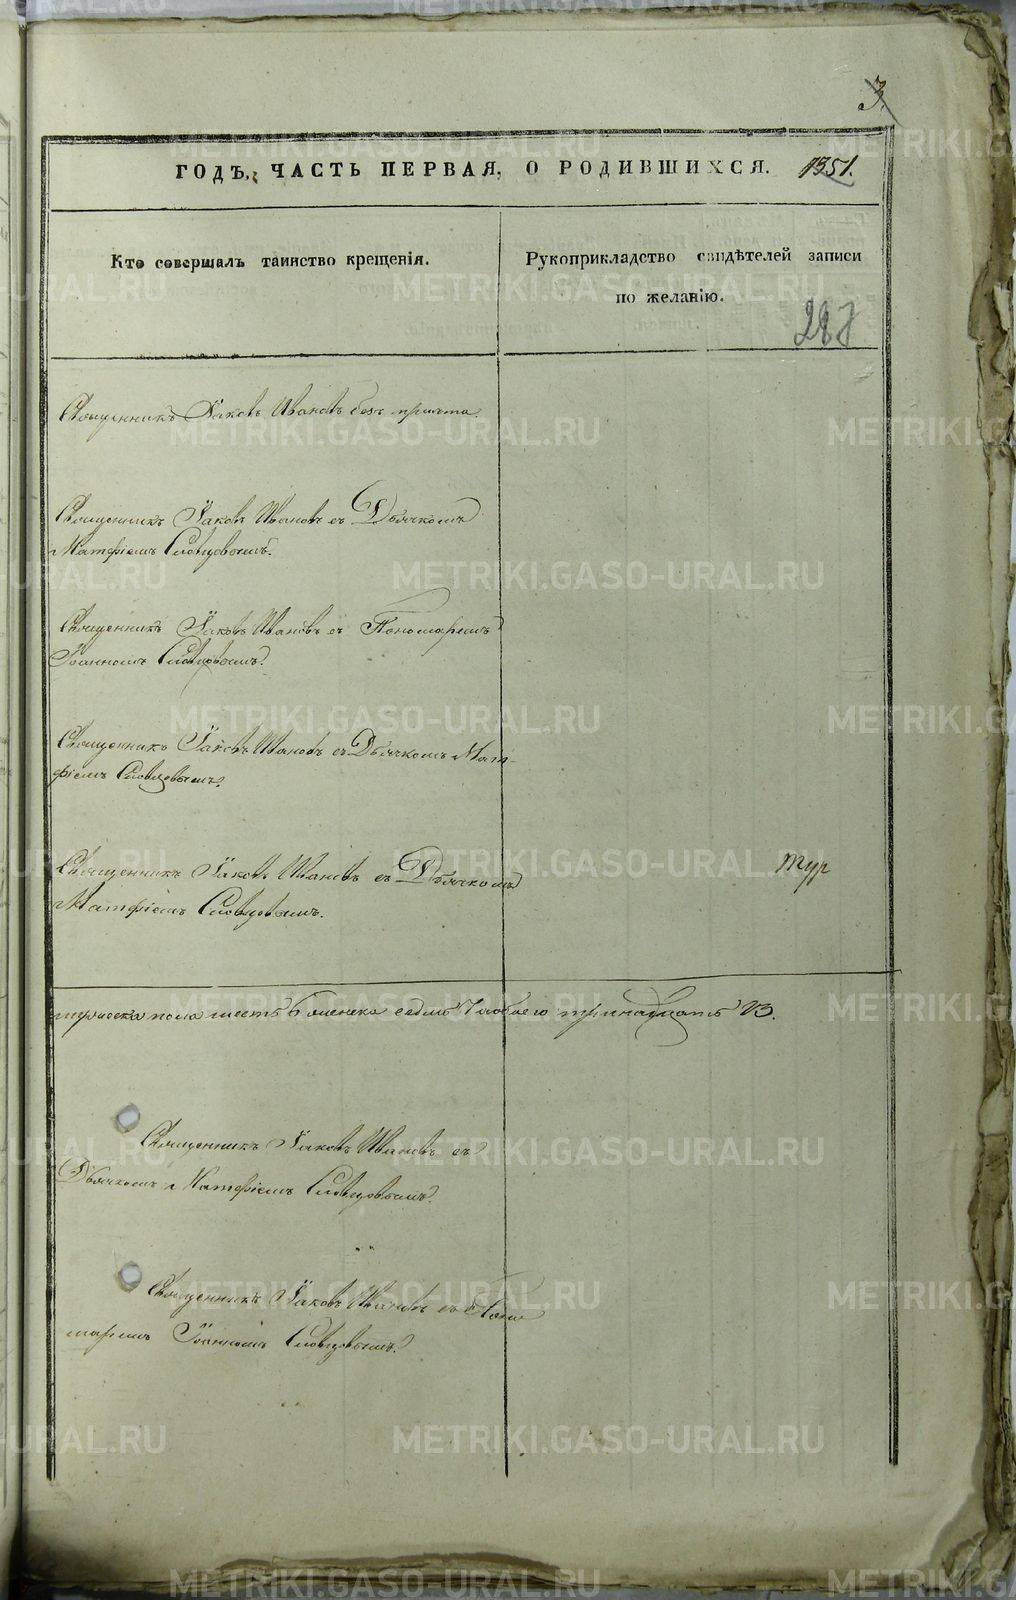 3.
ГОДЪ, ЧАСТЬ ПЕРВАЯ, О РОДИВШИХСЯ. 1851.
Кто совершалъ таинство крещенія.
Рукоприкладство свидѣтелей записи
по желанію.
287
Священникъ Іаковъ Ивановъ безъ причта
Священникъ Іаковъ Ивановъ съ Дьячкомъ
Матфіемъ Словцовымъ.
Священникъ Іаковъ Ивановъ съ Пономаремъ
Іоанномъ Словцовымъ.
Священникъ Іаковъ Ивановъ съ Дьячкомъ Мат-
фіемъ Словцовымъ.
Священникъ Іаковъ Ивановъ съ Дьячкомъ
Матфіемъ Словцовымъ.
тур
мужеска пола шесть 6 женска седмь 7 обоего тринадцать 13.
Священникъ Іаковъ Ивановъ съ
Дьячкомъ Матфіемъ Словцовымъ.
Священникъ Іаковъ Ивановъ съ Поно
маремъ Іоанномъ Словцовымъ.
METRIKI.GASO-URAL.RU